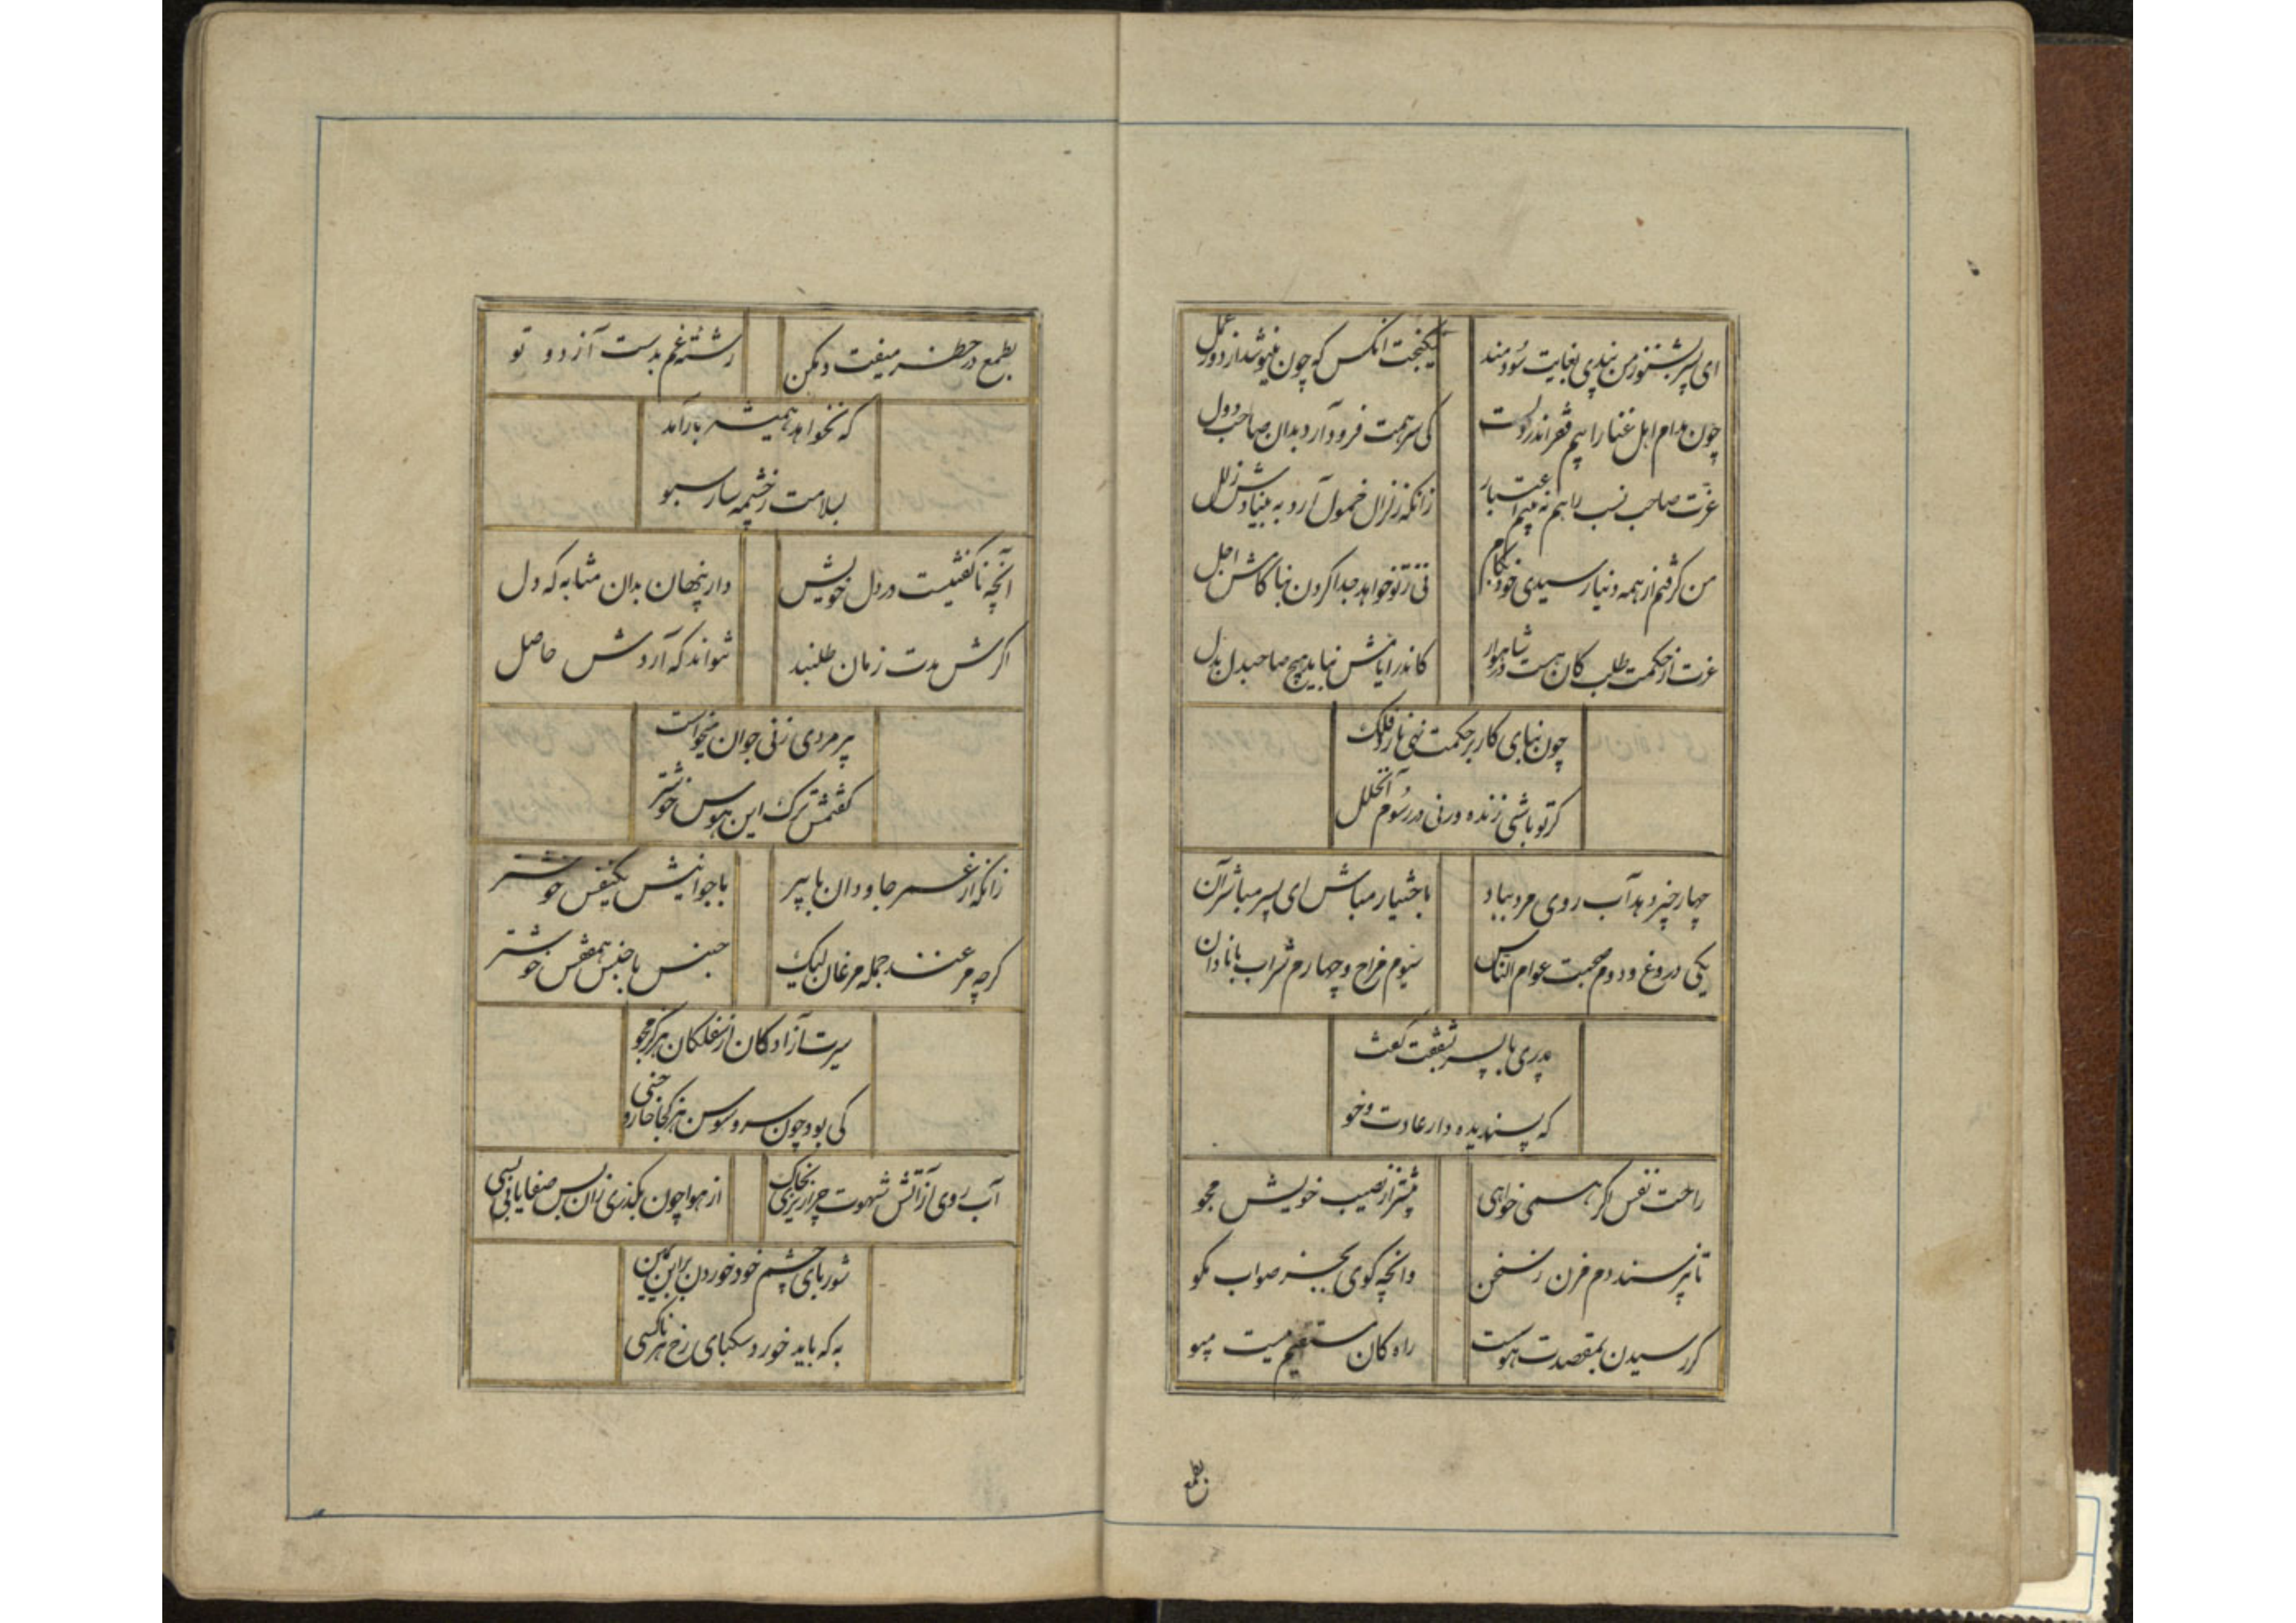 ای پسر بشنو ز من پندی بغایت سودمند
نیکبخت انکس که چون نیوشد از دور عمل
چون مدام اهل غنا را بیم فقر اندر ولست
کی سر همت فرود آرد بدان صاحب دول
عزت صاحب نسب را هم نه بینم اعتبار
زانکه زلزال خمول آرد به بنیادش زلل
من گرفتم از همه دنیا رسیدی خود بکام
نی ز تو خواهد جدا کردن بناکامش اجل
عزت از حکمت طلب کان هست در شاهوار
کاندر ایامش نیابد هیچ صاحبدل بدل
چون بنای کار بر حکمت نهی نارد فلک
گر تو باشی زنده ورنی در رسوم آن خلل
چهار چیز دهد آب روی مرد بباد
باختیار مباش ای پسر مباشر آن
یکی دروغ و دوم صحبت عوام الناس
سیوم مزاح و چهارم شراب با نادان
پدری با پسر بشفقت گفت
که پسندیده دار عادت و خو
راحت نفس اگر همی خواهی
بیشتر از نصیب خویش مجو
تا نپرسند دم مزن ز سخن
وانچه گوی بجز صواب مگو
گر رسیدن بمقصدت هوست
راه کان مستقیم نیست مپو
بطمع
بطمع در خطر میفت و مکن
رشتهٔ غم بدست آز دو تو
که نخواهد همیشه باز آمد
بسلامت ز چشمه سار سبو
آنچه ناگفتنیست در دل خویش
دار پنهان بدان مثابه که دل
اگرش مدت زمان طلبند
نتواند که آردش حاصل
پیر مردی زنی جوان میخواست
گفتمش ترک این هوس خوشتر
زانکه از عمر جاودان با پیر
با جوانیش یکنفس خوشتر
گرچه مرغند جمله مرغان لیک
جنس با جنس همقفس خوشتر
سیرت آزادگان از سفلگان هرگز مجو
کی بود چون سرو سوسن هر کجا خار و خسی
آب روی از آتش شهوت چرا ریزی بخاک
از هوا چون بگذری زان پس صفا یابی بسی
شوربای چشم خود خوردن برابن یمین
به که باید خورد سکبای رخ هر ناکسی